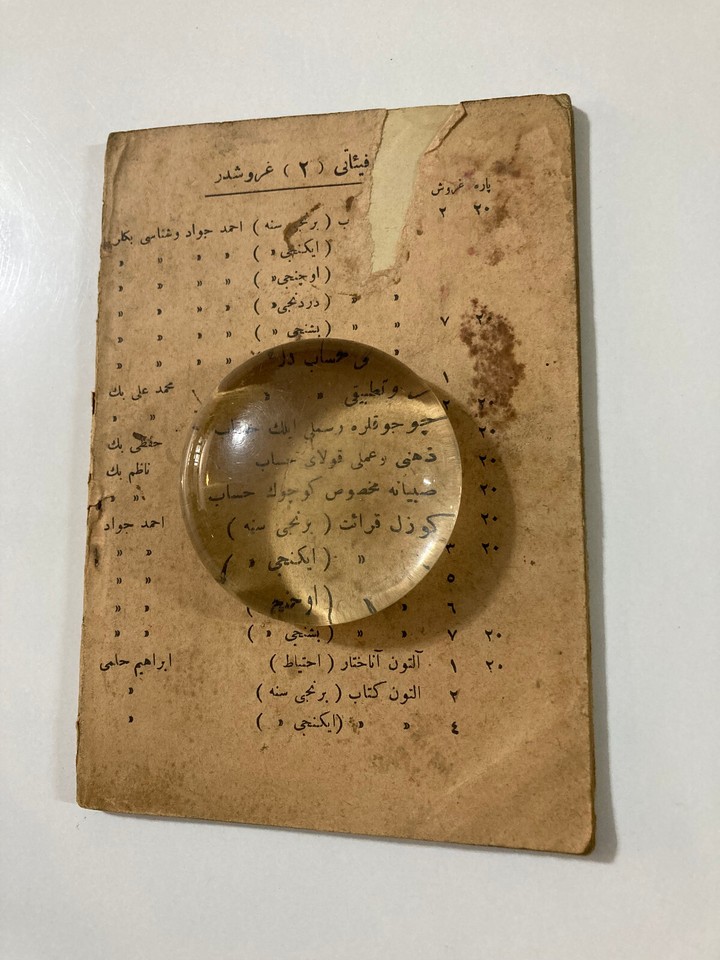 فیئاتی ( ٢ ) غروشدر
پاره غروش
٢٠ ٢ ب ( برنجی سنه ) احمد جواد وشناسی بكلر
( ایكنجی » ) » » » »
( اوچنجی » ) » » » »
» » ( دردنجی » ) » » » »
٧ » » ( بشنجی » ) » » » »
حساب
١ وتطبیقی » » محمد علی بك
٢٠ ٢ چوجوقلره رسملی ایلك حساب » »
٢٠ ذهنی وعملی قولای حساب حفظی بك
٢٠ صبیانه مخصوص كوچوك حساب ناظم بك
٢٠ كوزل قرائت ( برنجی سنه ) احمد جواد
٢٠ ٣ » » ( ایكنجی » ) » »
٥ » »
٦ » » ( اوچنجی » ) » »
٢٠ ٧ » » ( بشنجی » ) » »
٢٠ ١ آلتون آناختار ( احتیاط ) ابراهیم حلمی
٢ التون كتاب ( برنجی سنه ) »
٤ » » ( ایكنجی » ) »